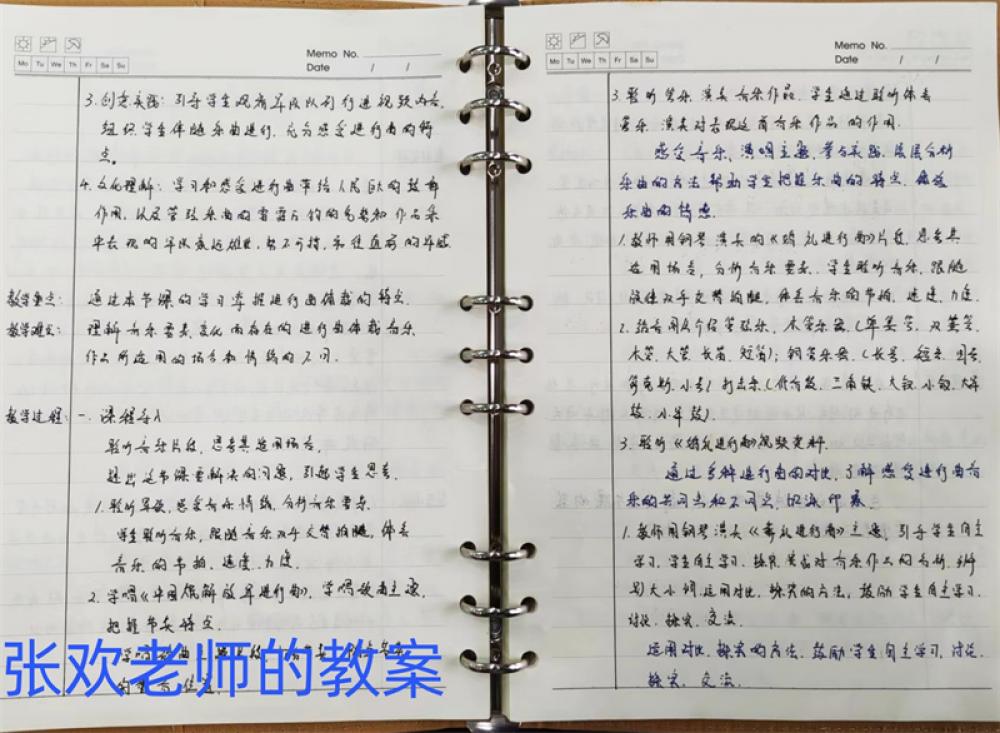 Memo No.
Date / /
Mo Tu We Th Fr Sa Su
3.创意实践:引导学生观看军队队列行进视频内容,
组织学生体随乐曲进行,充分感受进行曲的特
点。
4.文化理解:学习和感受进行曲带给人民巨大的鼓舞
作用,以及管弦乐曲的
教学重点:通过本节课的学习掌握进行曲体裁的特点.
教学难点:理解音乐要素变化而存在的进行曲体裁音乐
作品所适用的场合和情绪的不同.
教学过程:一.课程导入
聆听音乐片段,思考其适用场合,
提出这节课要解决的问题,引起学生思考.
1.聆听军歌,感受音乐情绪,分析音乐要素,
学生聆听音乐,跟随音乐双手交替拍腿,体会
音乐的节拍、速度、力度.
2.学唱《中国人民解放军进行曲》,学唱歌曲主题,
把握节奏特点.
张欢老师的教案
Memo No.
Date / /
Mo Tu We Th Fr Sa Su
3.聆听管乐演奏音乐作品,学生通过聆听体会
管乐演奏对表现这首音乐作品的作用.
感受音乐、演唱主题、参与实践、层层分析
乐曲的方法帮助学生把握乐曲的特点,
乐曲的情感
1.教师用钢琴演奏的《婚礼进行曲》片段,思考其
适用场合,分析音乐要素.学生聆听音乐,跟随
双手交替拍腿,体会音乐的节拍、速度、力度.
2.管弦乐、木管乐器(单簧管、双簧管、
木管、大管、长笛、短笛);铜管乐器(长号、
小号)打击乐(三角铁、大钹、小钹、大军
鼓、小军鼓).
3.聆听《婚礼进行曲》视频资料.
通过多种进行曲的对比,了解感受进行曲音
乐的共同点和不同点,加深印象
1.教师用钢琴演奏《婚礼进行曲》主题,引导学生自主
学习,学生自主学习、探究
运用对比、探究的方法,鼓励学生自主学习、
讨论、探究、交流.
运用对比、探究的方法,鼓励学生自主学习、讨论、
探究、交流.